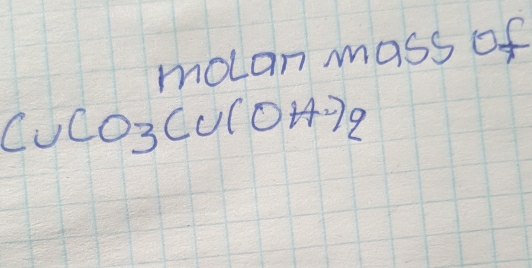 molan mass of
CuCO3Cu(OH)2